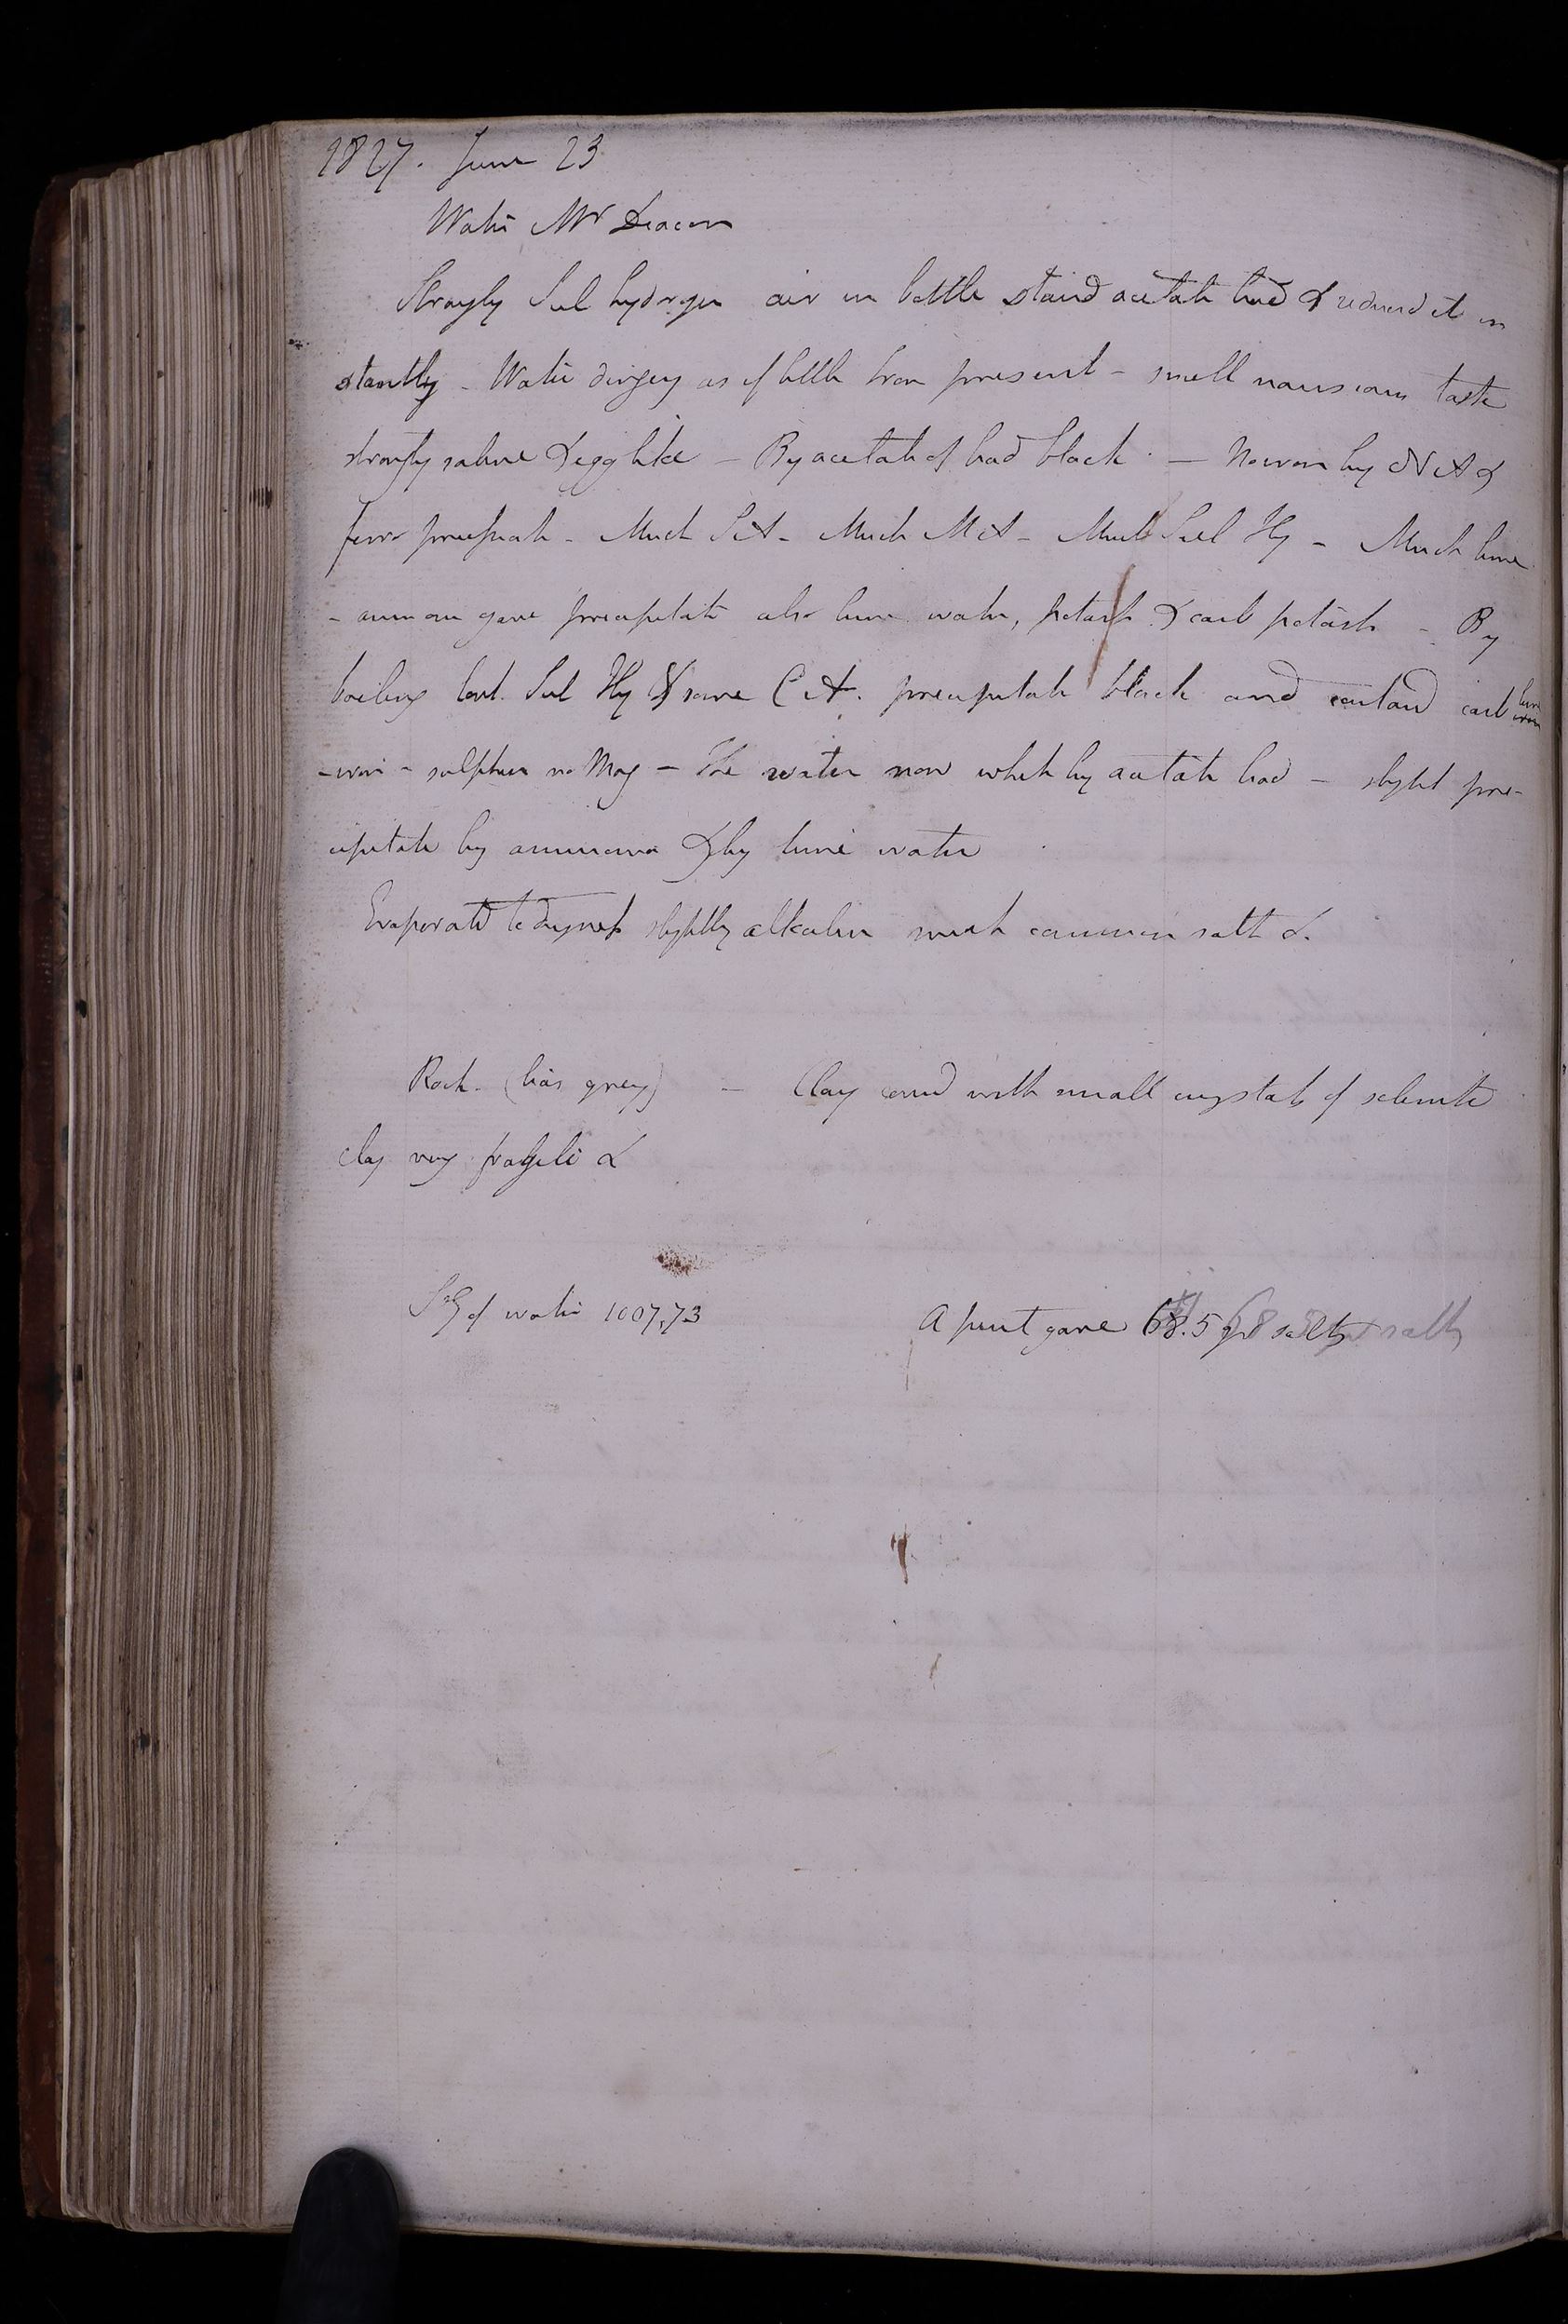 1827. June 23
Water Mr Deacon
Strongly Sul hydrogen air in bottle staind acetate lead & reduced it in
stantly - Water dingy as if little iron present - smell nauseous taste
strongly saline & egg like - By acetate of lead black - No iron by N A &
ferro prussiate - Much S A - Much M A - Much Sul Hy - Much lime
- ammon gave precipitate also lime water, potash & carb potash - By
boiling lost Sul Hy & some C A. precipitate black and containd carb lime
- iron - sulphur no Mag - The water now white by acetate lead - slight pre-
cipitate by ammonia & by lime water
Evaporated to dryness slightly alkaline much common salt &.
Rock (lias grey) - Clay coverd with small crystals of selenite
clay very fragile &
S G of water 1007,73
A pint gave 68.5 gr salts